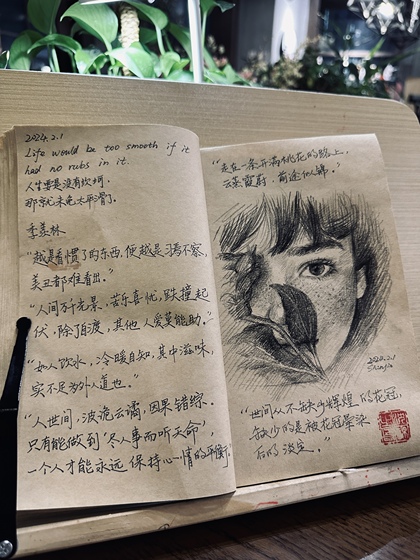 2024.2.1
Life would be too smooth if it
had no rubs in it.
人生要是没有坎坷,
那就未免太平滑了。
季羡林
“越是看惯了的东西,便越是习焉不察,
美丑都难看出。”
“人间万千光景,苦乐喜忧,跌撞起
伏,除了自渡,其他人爱莫能助。”
“如人饮水,冷暖自知,其中滋味,
实不足为外人道也。”
“人世间,波诡云谲,因果错综。
只有能做到“尽人事而听天命”,
一个人才能永远保持心情的平衡。
“走在一条开满桃花的路上,
云蒸霞蔚,前途似锦。”
2024.2.1
“世间从不缺少辉煌的花冠,
缺少的是被花冠笼罩
后的淡定。”